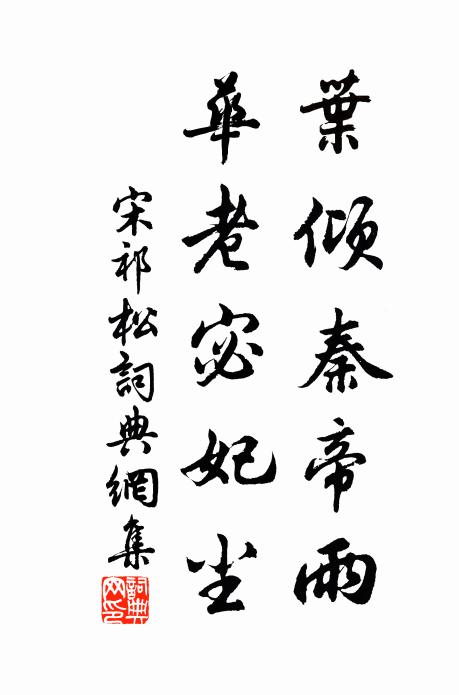 葉傾秦帝雨
華老宓妃尘
宋祁松詞典網集
詞典网印